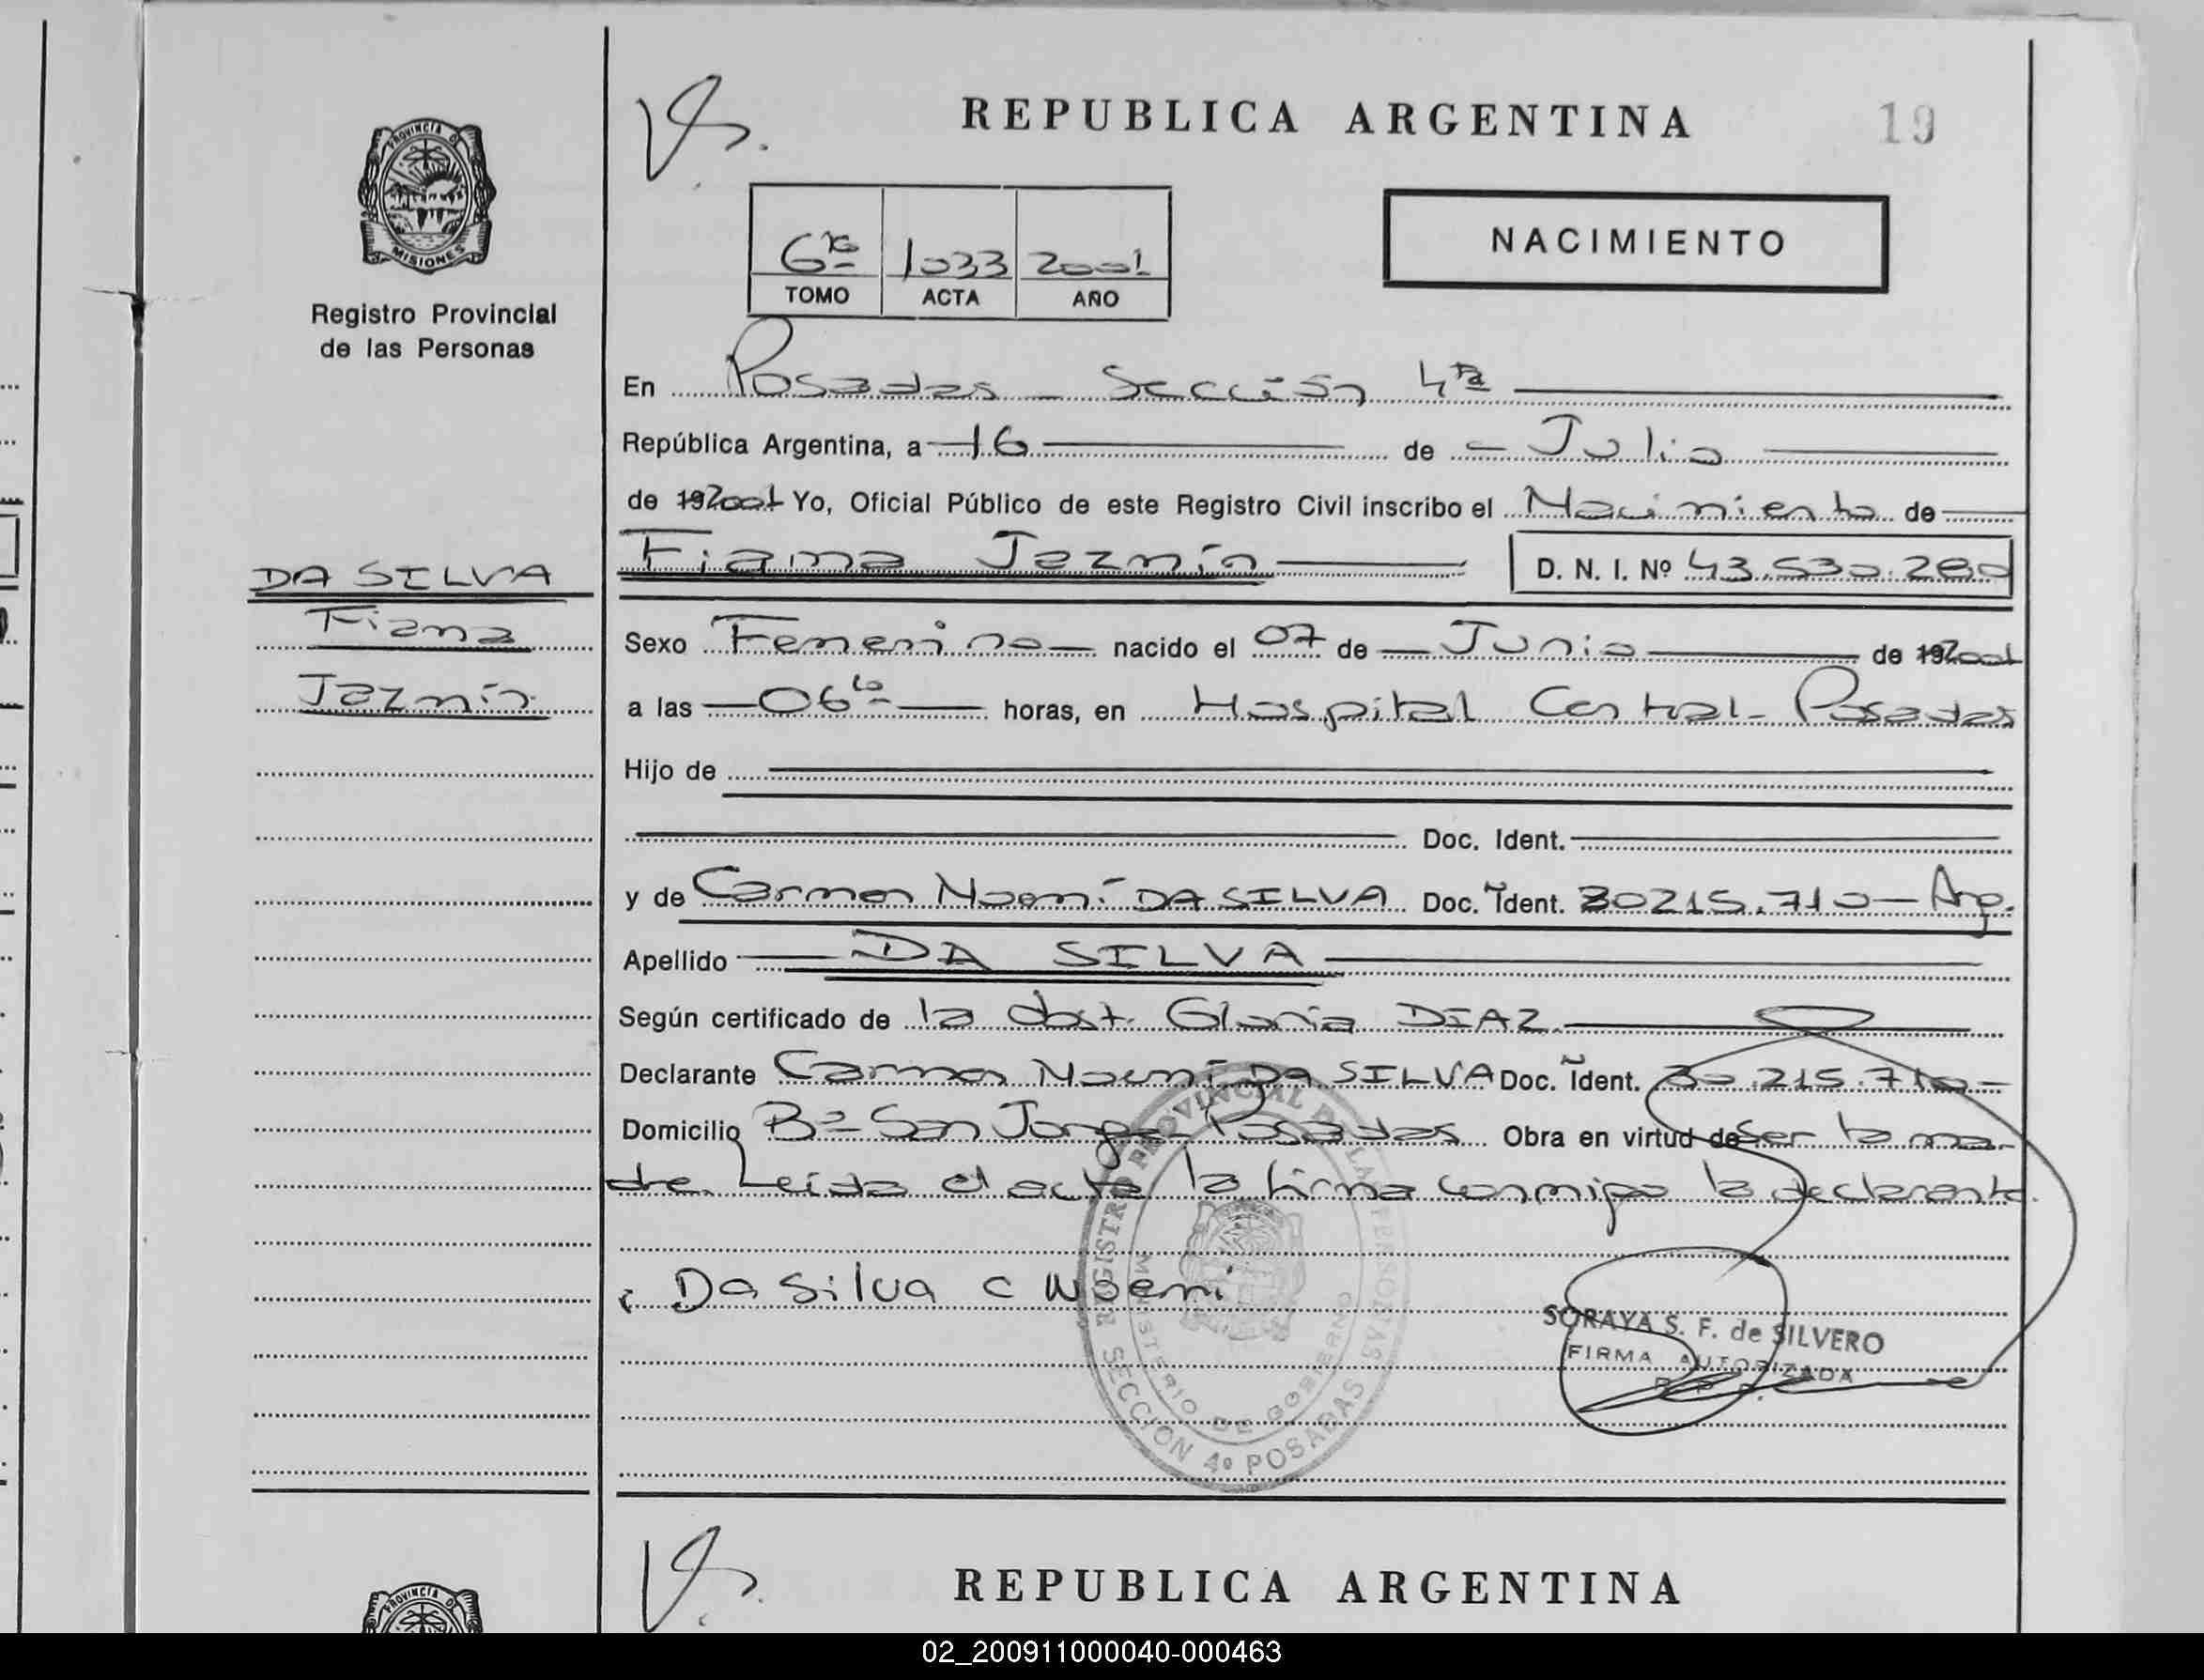 REPUBLICA ARGENTINA
19
PROVINCIA DE
MISIONES
Registro Provincial
de las Personas
6to 1033 2001
TOMO ACTA AÑO
NACIMIENTO
En Posadas - Sección 4ta
República Argentina, a 16 de Julio
de 192001 Yo, Oficial Público de este Registro Civil inscribo el Nacimiento de
Fiama Jazmín D. N. I. Nº 43.530.280
DA SILVA
Fiama
Jazmín
Sexo Femenino nacido el 07 de Junio de 192001
a las 06to horas, en Hospital Central - Posadas
Hijo de
Doc. Ident.
y de Carmen Noemí DA SILVA Doc. Ident. 30215.710 - Arg.
Apellido DA SILVA
Según certificado de la obst. Gloria DIAZ
Declarante Carmen Noemí DA SILVA Doc. Ident. 30.215.710 -
Domicilio Bº San Jorge - Posadas Obra en virtud de ser la ma-
dre. Leída el acta la firma conmigo la declarante.
Da Silva C Noemi
REGISTRO PROVINCIAL DE LAS PERSONAS
MINISTERIO DE GOBIERNO
SECCIÓN 4º POSADAS
SORAYA S. F. de SILVERO
FIRMA AUTORIZADA
R. P. P.
REPUBLICA ARGENTINA
PROVINCIA DE
02_200911000040-000463